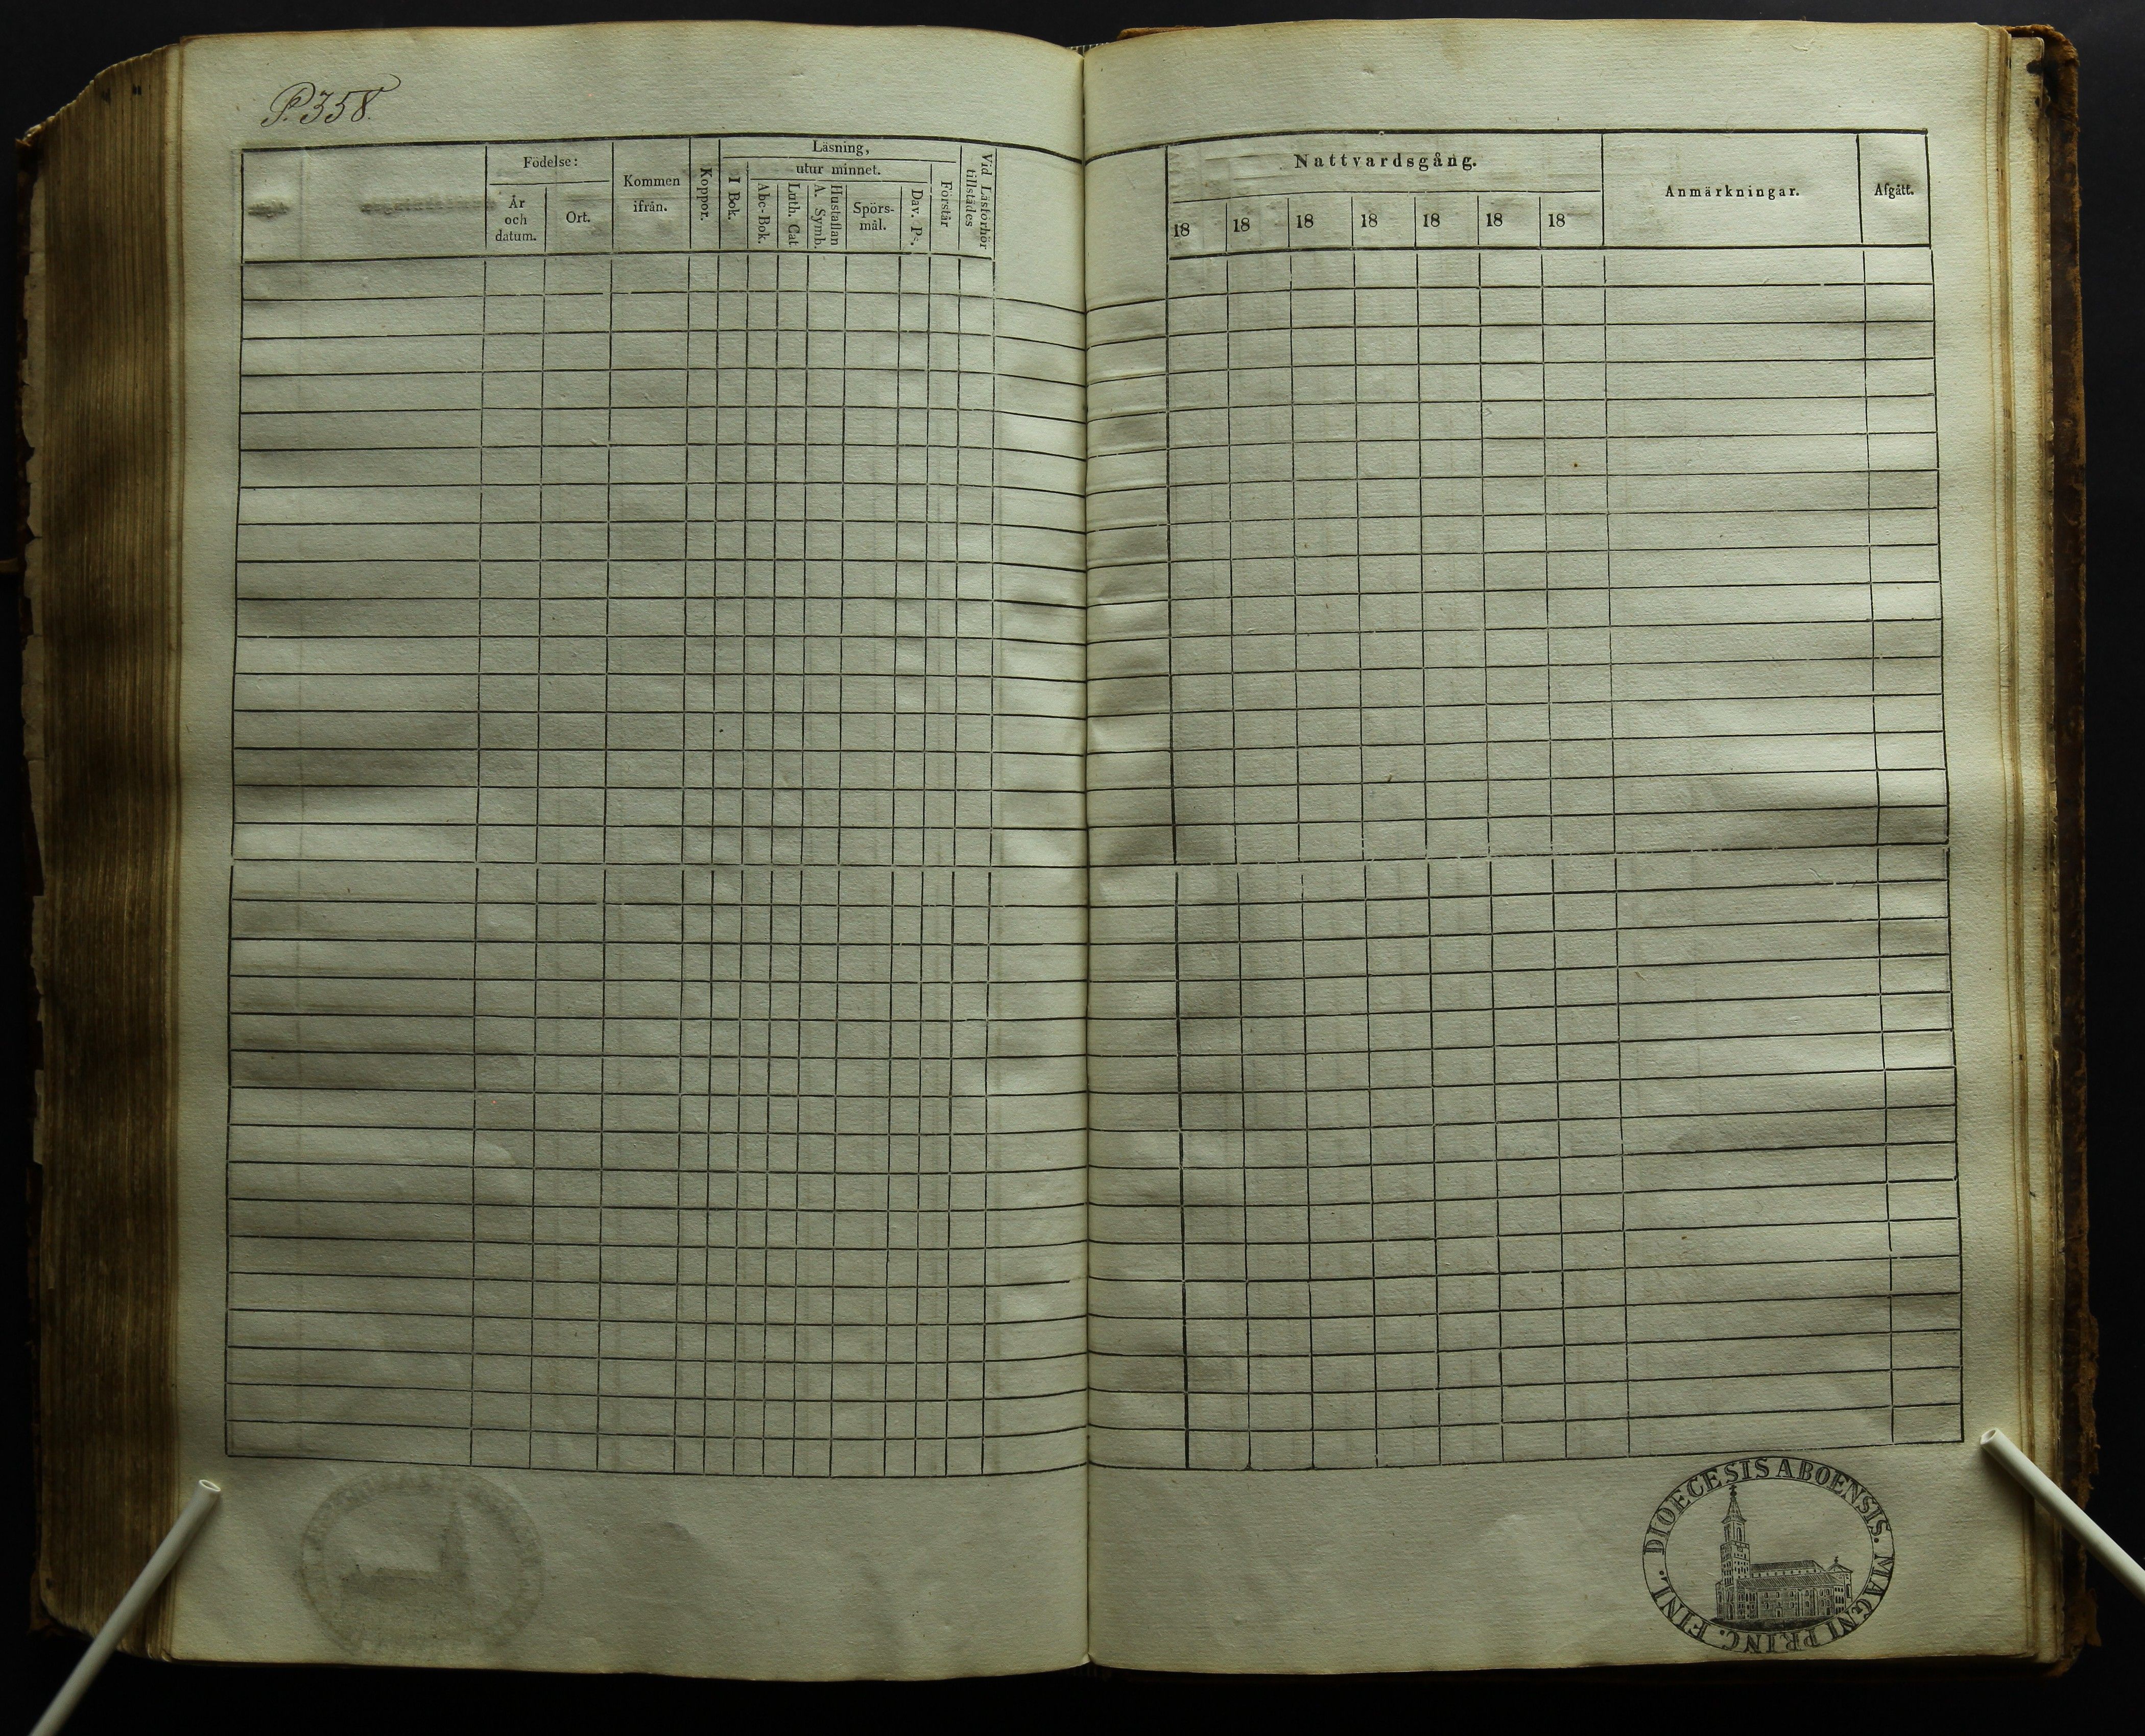 P. 358.
Födelse:
År
och
datum.
Ort.
Kommen
ifrån.
Koppor.
Läsning,
I Bok.
utur minnet.
Abc-Bok.
Luth. Cat.
Hustaflan
A. Symb.
Spörs-
mål.
Dav. Ps.
Förstår
Vid Läsförhör
tillstädes
Nattvardsgång.
18 18 18 18 18 18 18
Anmärkningar.
Afgått.
DIOECESIS ABOENSIS. MAGNI PRINC. FINL.